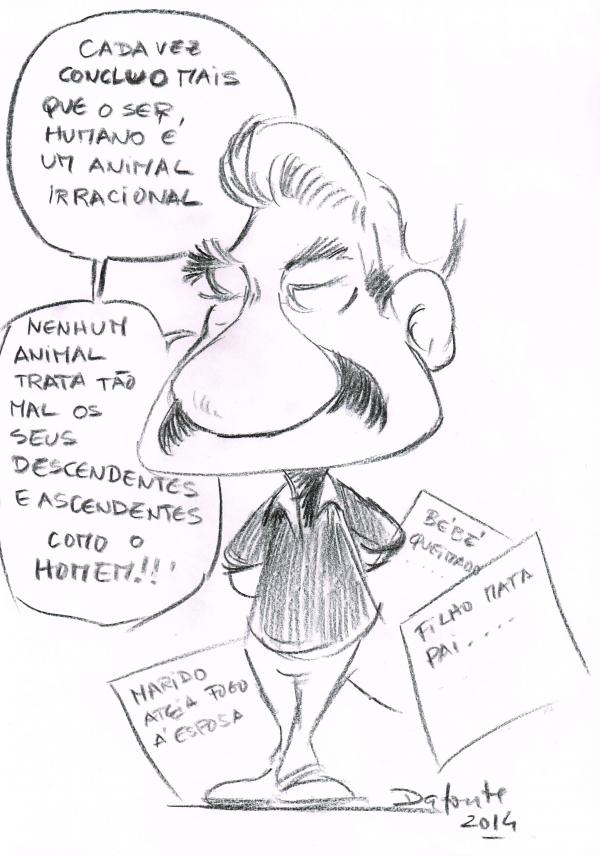 CADA VEZ
CONCLUO MAIS
QUE O SER
HUMANO É
UM ANIMAL
IRRACIONAL
NENHUM
ANIMAL
TRATA TÃO
MAL OS
SEUS
DESCENDENTES
E ASCENDENTES
COMO O
HOMEM!!!
BÉBÉ
QUEIMADO
.....
FILHO MATA
PAI....
MARIDO
ATEIA FOGO
Á ESPOSA
Dafonte
2014